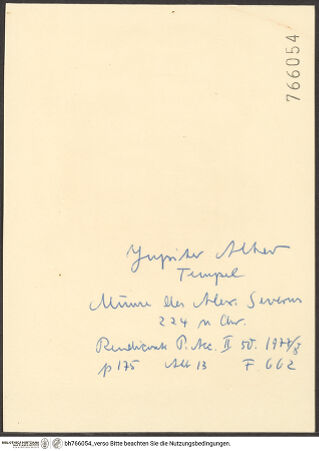 766054
Jupiter Ultor
Tempel
Münze des Alex. Severus
224 n Chr.
Rendiconti P. Acc. II 50. 1977/8
p 175 Abb 13 F. 662
bh766054_verso Bitte beachten Sie die Nutzungsbedingungen.